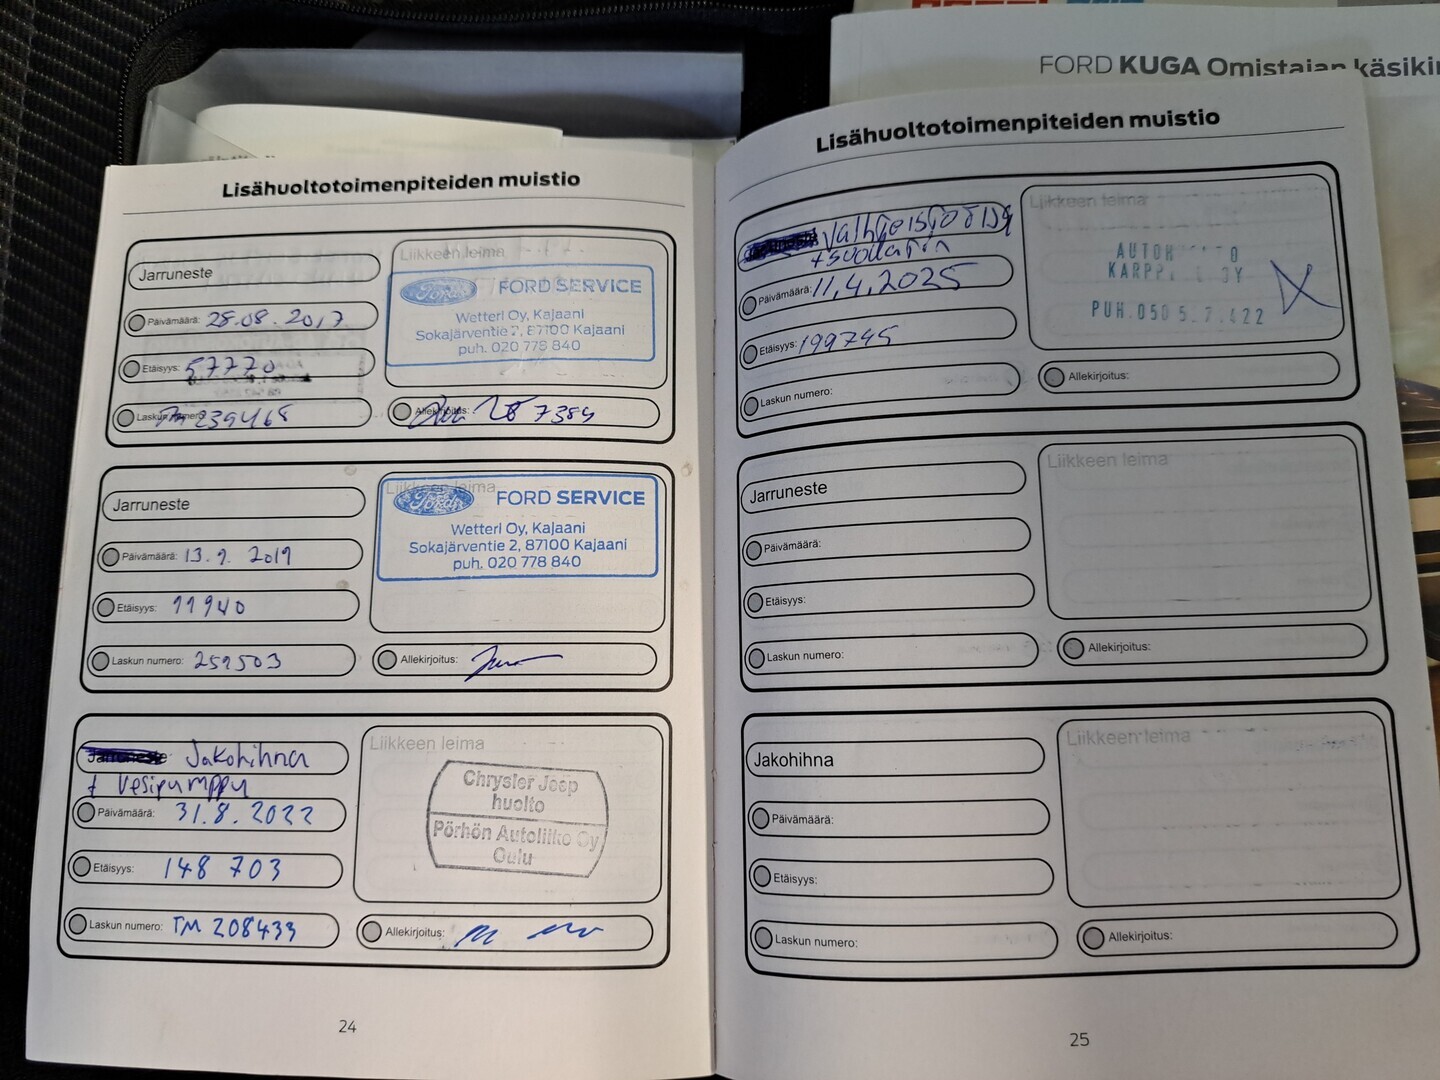 FORD KUGA Omistajan käsikir
Lisähuoltotoimenpiteiden muistio
Jarruneste
Liikkeen leima
Ford
FORD SERVICE
Wetteri Oy, Kajaani
Sokajärventie 2, 87100 Kajaani
puh. 020 778 840
Päivämäärä: 28.08.2017
Etäisyys: 57770
Laskun numero: 239468
Allekirjoitus:
Jarruneste
Liikkeen leima
Ford
FORD SERVICE
Wetteri Oy, Kajaani
Sokajärventie 2, 87100 Kajaani
puh. 020 778 840
Päivämäärä: 13.9.2019
Etäisyys: 11940
Laskun numero: 259503
Allekirjoitus:
Jarruneste Jakohihna
+ Vesipumppu
Liikkeen leima
Chrysler Jeep
huolto
Pörhön Autoliike Oy
Oulu
Päivämäärä: 31.8.2022
Etäisyys: 148 703
Laskun numero: TM 208433
Allekirjoitus:
24
Lisähuoltotoimenpiteiden muistio
+ suodatin
Liikkeen leima
Päivämäärä: 11.4.2025
Etäisyys: 199745
PUH.050
Laskun numero:
Allekirjoitus:
Jarruneste
Liikkeen leima
Päivämäärä:
Etäisyys:
Laskun numero:
Allekirjoitus:
Jakohihna
Liikkeen leima
Päivämäärä:
Etäisyys:
Laskun numero:
Allekirjoitus:
25